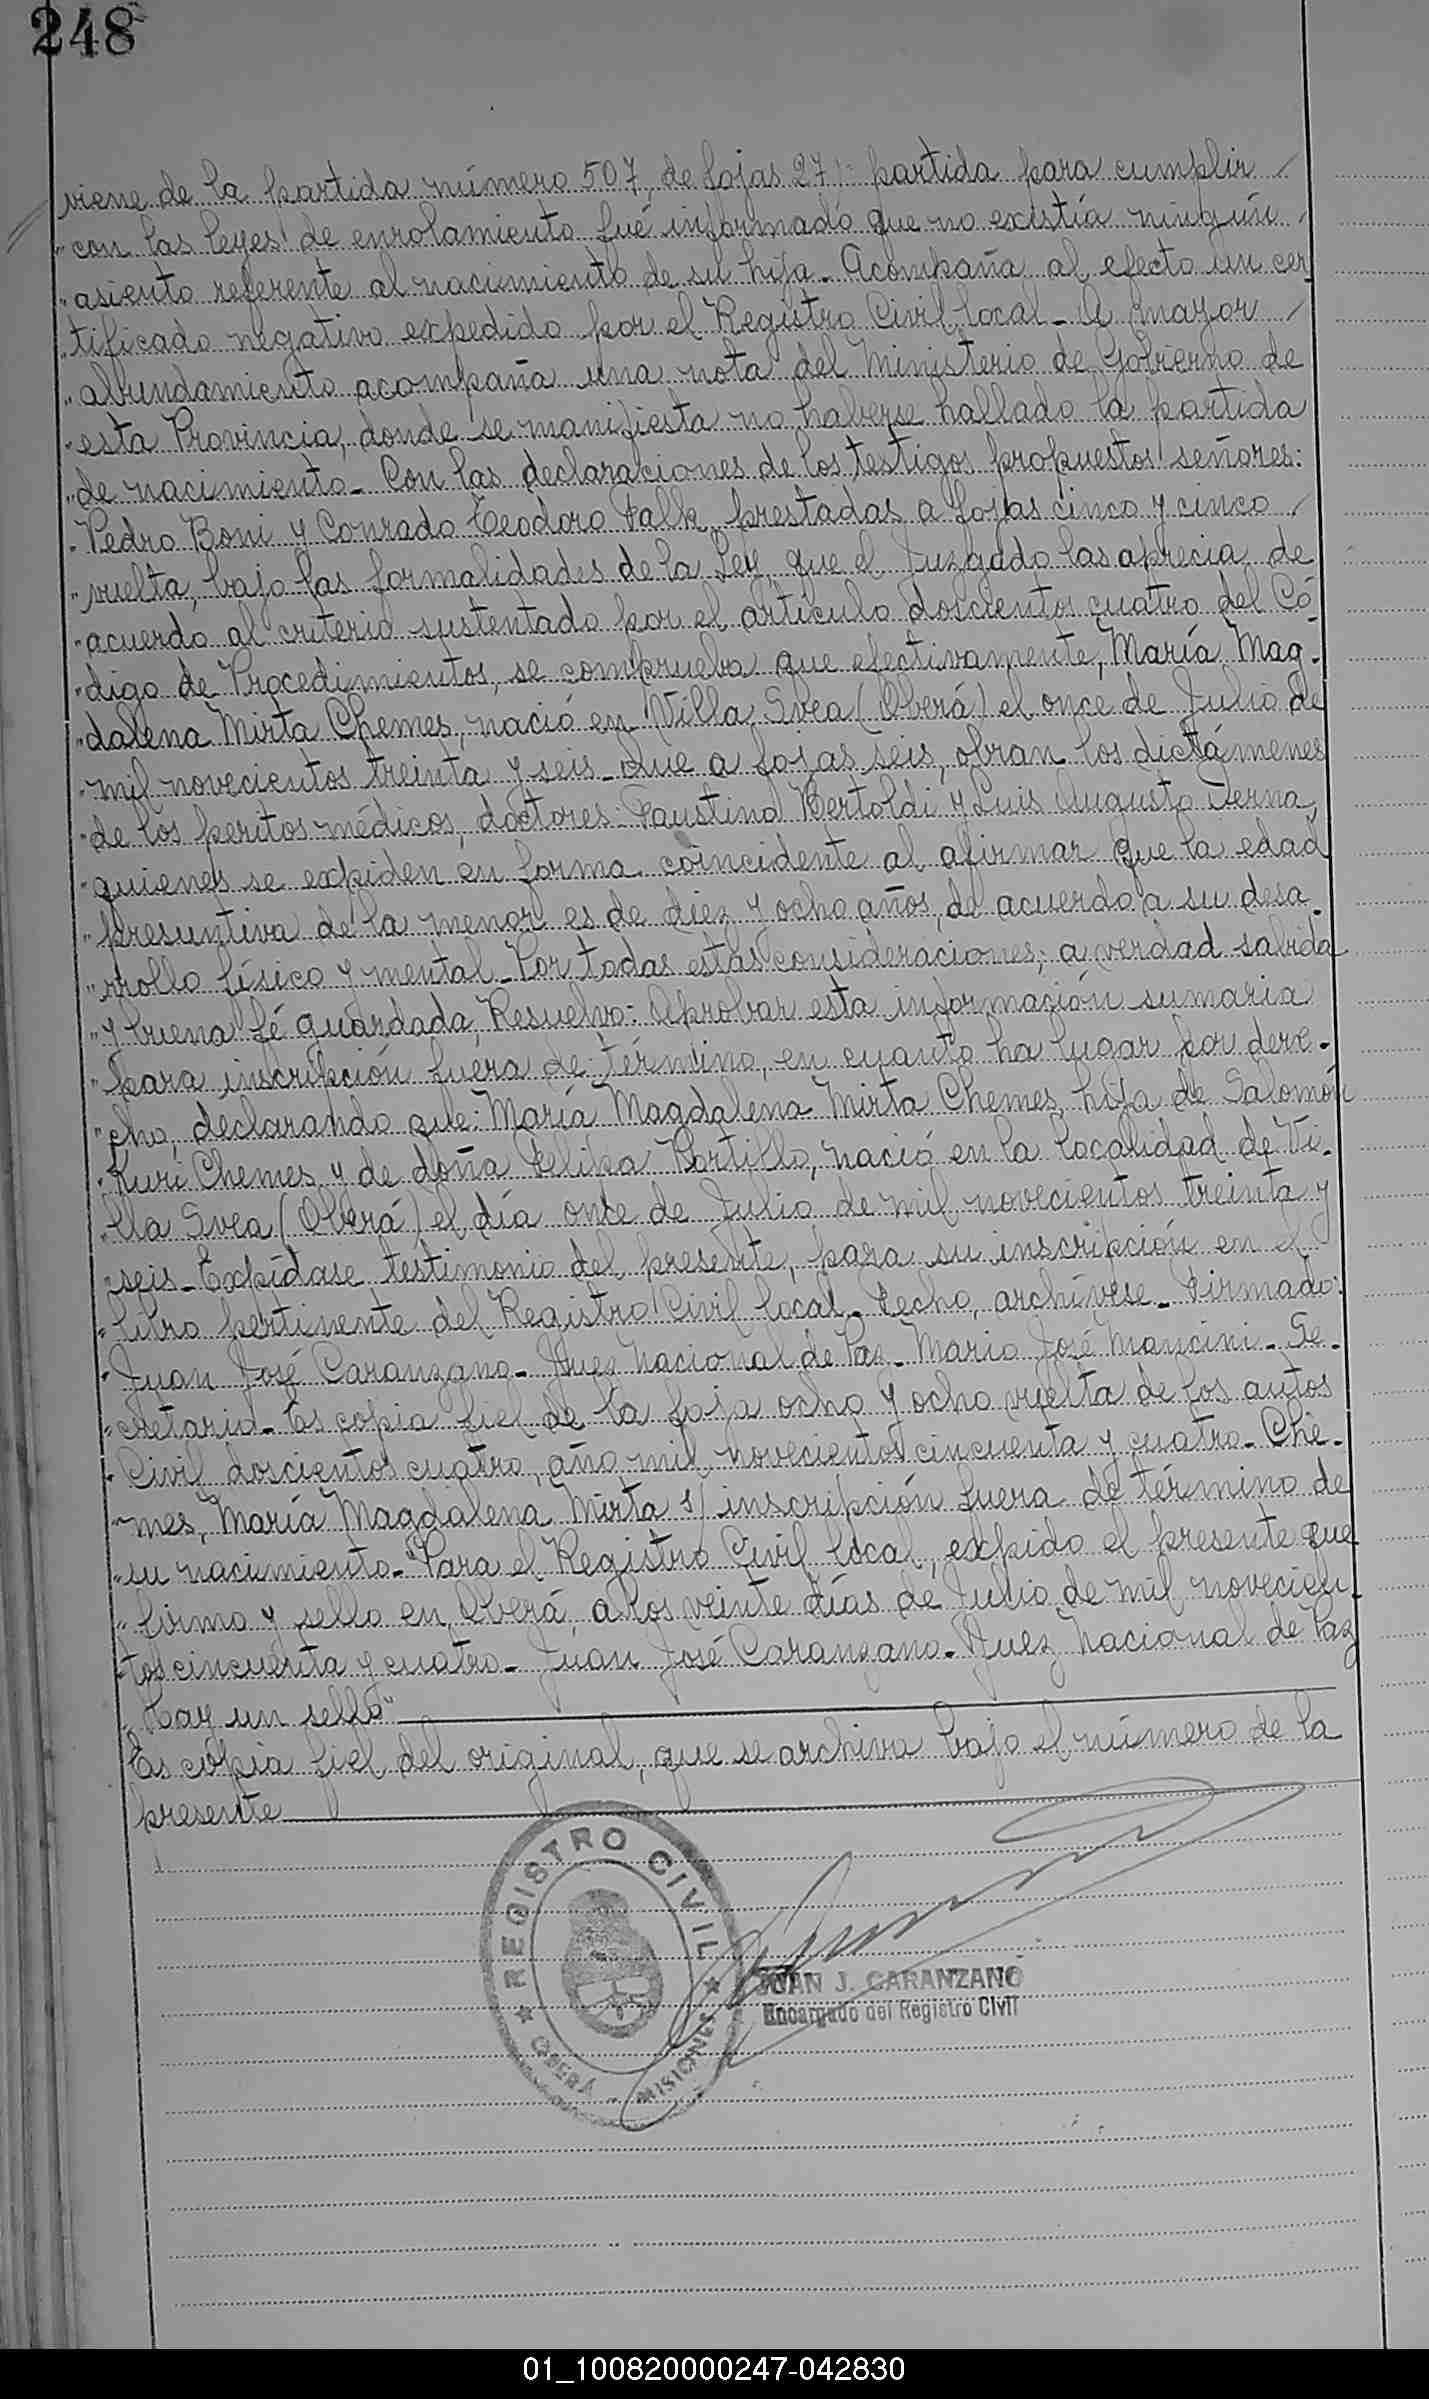 248
viene de la partida número 507, de fojas 27/: partida para cumplir /
"con las leyes de enrolamiento fué informado que no existía ningún /
"asiento referente al nacimiento de su hija_ Acompaña al efecto un cer
"tificado negativo expedido por el Registro Civil local_ A mayor /
"abundamiento acompaña una nota del Ministerio de Gobierno de
"esta Provincia, donde se manifiesta no haberse hallado la partida
"de nacimiento_ Con las declaraciones de los testigos propuestos señores:
"Pedro Boni y Conrado Teodoro Falk, prestadas a fojas cinco y cinco /
"vuelta, bajo las formalidades de la Ley, que el Juzgado las aprecia de
"acuerdo al criterio sustentado por el artículo doscientos cuatro del Có
"digo de Procedimientos, se comprueba que efectivamente, María Mag-
"dalena Mirta Chemes, nació en Villa Svea (Oberá) el once de Julio de
"mil novecientos treinta y seis_ Que a fojas seis, obran los dictámenes
"de los peritos médicos, doctores: Faustino Bertoldi y Luis Augusto Derna,
"quienes se expiden en forma coincidente al afirmar que la edad
"presuntiva de la menor es de diez y ocho años, de acuerdo a su desa-
"rrollo físico y mental_ Por todas estas consideraciones; a verdad sabida
"y buena fé guardada, Resuelvo: Aprobar esta información sumaria
"para inscripción fuera de término, en cuanto ha lugar por dere-
"cho, declarando que: María Magdalena Mirta Chemes, hija de Salomón
"Kuri Chemes y de doña Elixa Portillo, nació en la localidad de Vi-
"lla Svea (Oberá) el día once de Julio de mil novecientos treinta y
"seis_ Expídase testimonio del presente, para su inscripción en el
"libro pertinente del Registro Civil local_ Fecho, archívese_ Firmado:
"Juan José Caranzano_ Juez Nacional de Paz_ Mario José Mancini_ Se-
"cretario_ Es copia fiel de la foja ocho y ocho vuelta de los autos
"Civil doscientos cuatro, año mil novecientos cincuenta y cuatro_ Che-
"mes, María Magdalena Mirta s/ inscripción fuera de término de
"su nacimiento_ Para el Registro Civil local, expido el presente que
"firmo y sello en Oberá, a los veinte días de Julio de mil novecien-
"tos cincuenta y cuatro_ Juan José Caranzano_ Juez Nacional de Paz
"Hay un sello"
Es copia fiel del original, que se archiva bajo el número de la
presente
REGISTRO CIVIL
OBERÁ - MISIONES
JUAN J. CARANZANO
Encargado del Registro Civil
01_100820000247-042830